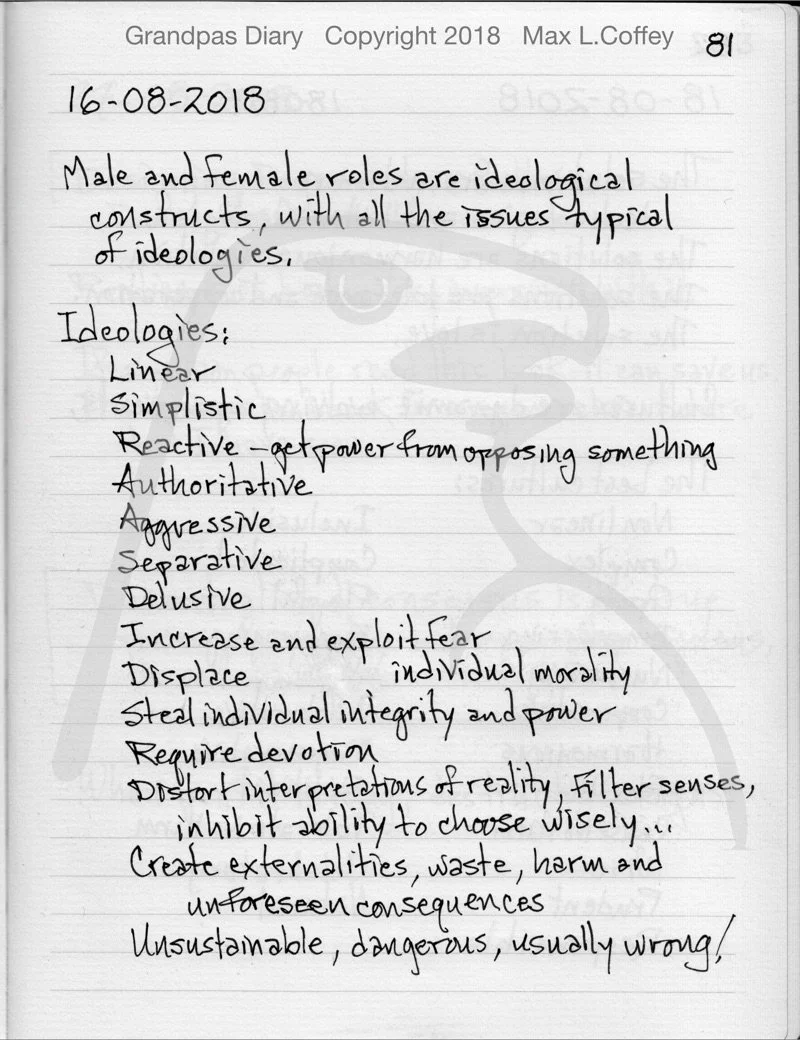 Grandpas Diary Copyright 2018 Max L.Coffey
81
16-08-2018
Male and female roles are ideological
constructs, with all the issues typical
of ideologies.
Ideologies:
Linear
Simplistic
Reactive - get power from opposing something
Authoritative
Aggressive
Separative
Delusive
Increase and exploit fear
Displace individual morality
Steal individual integrity and power
Require devotion
Distort interpretations of reality, filter senses,
inhibit ability to choose wisely...
Create externalities, waste, harm and
unforeseen consequences
Unsustainable, dangerous, usually wrong!